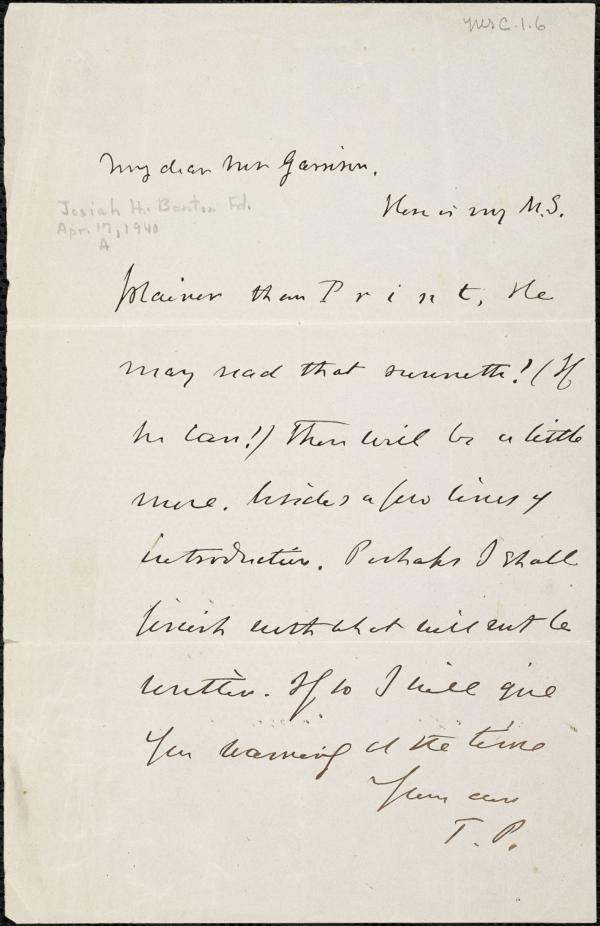 Ms C.1.6
My dear Mr Garrison.
Josiah H. Benton Fd.
Apr. 17, 1940
A
Here is my M.S.
plainer than P r i n t, He
may read that runneth! (If
he can!) There will be a little
more. besides a few lines of
introduction. Perhaps I shall
finish with what will not be
written. If so I will give
you warning at the time
Yours
T. P.